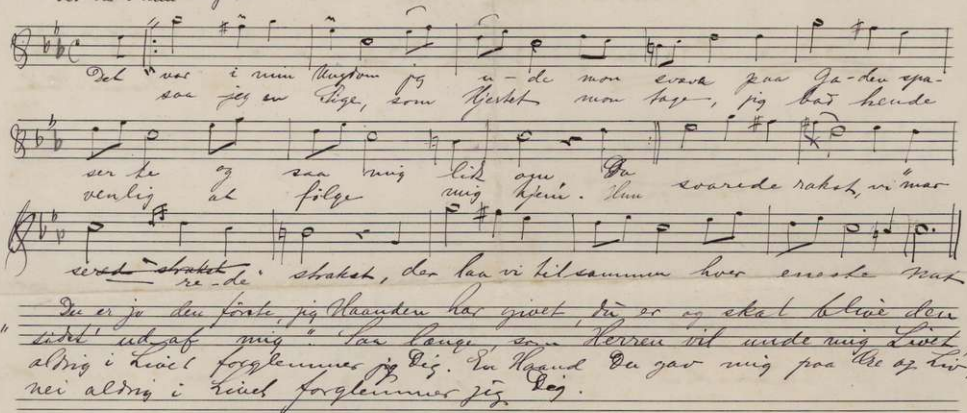 Det var i min Ungdom jeg u-de mon svava paa Ga-den spa-
saa jeg en Pige, som Hjertet mon tage, jeg bad hende
ser te og saa mig lidt om Da
venlig at følge mig hjem. Hun svarede rakst, vi "mar
re-de" strakst, der laa vi tilsammen hver eneste nat
Du er jo den første, jeg Haanden har givet, du er og skal blive den
sidst' ud af mig". Saa længe, som Herren vil unde mig Livet
aldrig i Livet forglemmer jeg Dig. En Haand Du gav mig paa Ære og Liv
nei aldrig i Livet forglemmer jeg Dig.